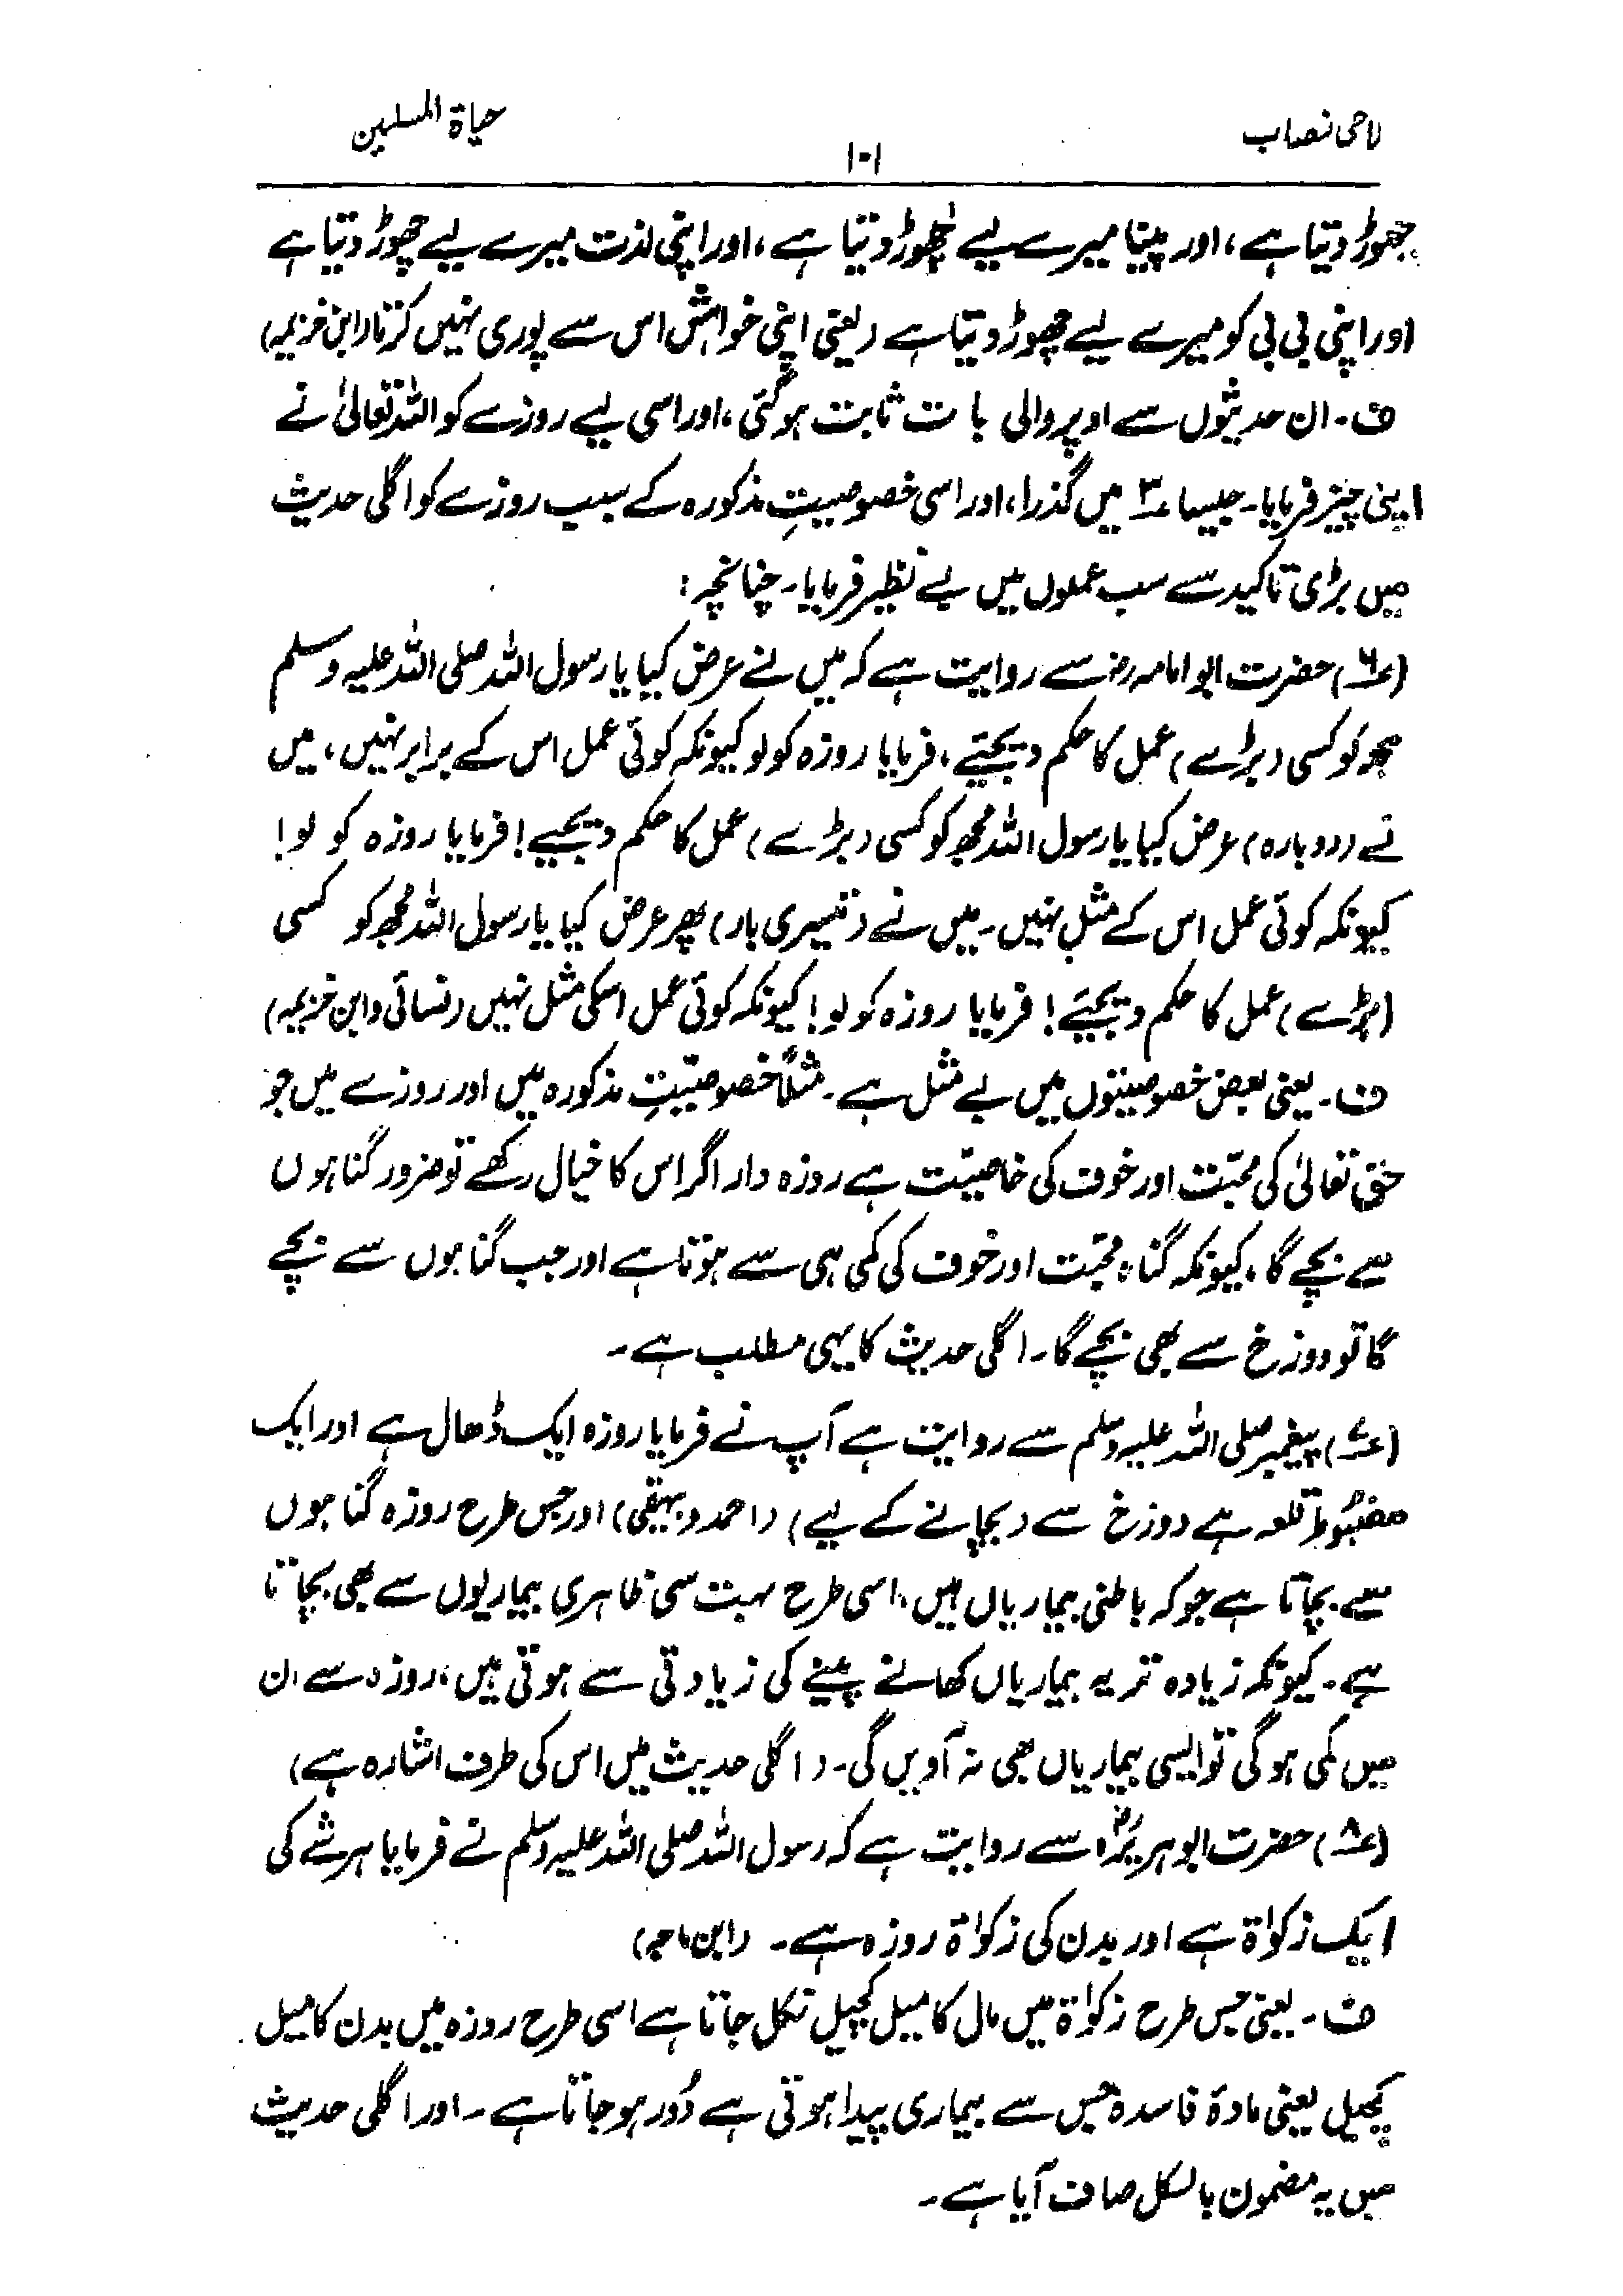 لاحی نصاب
۱۰۱
حیاۃ المسلمین
چھوڑ دیتا ہے، اور پینا میرے لیے چھوڑ دیتا ہے، اور اپنی لذت میرے لیے چھوڑ دیتا ہے
اور اپنی بی بی کو میرے لیے چھوڑ دیتا ہے (یعنی اپنی خواہش اس سے پوری نہیں کرتا (ابن خزیمہ)
ف۔ ان حدیثوں سے اوپر والی بات ثابت ہوگئی، اور اسی لیے روزے کو اللہ تعالیٰ نے
اپنی چیز فرمایا۔ جیسا ۳؎ میں گذرا، اور اسی خصوصیتِ مذکورہ کے سبب روزے کو اگلی حدیث
میں بڑی تاکید سے سب عملوں میں بے نظیر فرمایا۔ چنانچہ:
(۶؎) حضرت ابوامامہ رض سے روایت ہے کہ میں نے عرض کیا یا رسول اللہ صلی اللہ علیہ وسلم
مجھ کو کسی (بڑے) عمل کا حکم دیجئیے، فرمایا روزہ کو لو کیونکہ کوئی عمل اس کے برابر نہیں، میں
نے (دوبارہ) عرض کیا یا رسول اللہ مجھ کو کسی (بڑے) عمل کا حکم دیجیے! فرمایا روزہ کو لو!
کیونکہ کوئی عمل اس کے مثل نہیں۔ میں نے (تیسری بار) پھر عرض کیا یا رسول اللہ مجھ کو کسی
(بڑے) عمل کا حکم دیجئیے! فرمایا روزہ کو لو! کیونکہ کوئی عمل اسکی مثل نہیں (نسائی وابن خزیمہ)
ف۔ یعنی بعض خصوصیتوں میں بے مثل ہے۔ مثلاً خصوصیّتِ مذکورہ میں اور روزے میں جو
حق تعالیٰ کی محبّت اور خوف کی خاصیّت ہے روزہ دار اگر اس کا خیال رکھے تو ضرور گناہوں
سے بچے گا، کیونکہ گناہ محبّت اور خوف کی کمی ہی سے ہوتا ہے اور جب گناہوں سے بچے
گا تو دوزخ سے بھی بچے گا۔ اگلی حدیث کا یہی مطلب ہے۔
(۷؎) پیغمبر صلی اللہ علیہ وسلم سے روایت ہے آپ نے فرمایا روزہ ایک ڈھال ہے اور ایک
مضبُوط قلعہ ہے دوزخ سے (بچانے کے لیے) (احمد و بیہقی) اور جس طرح روزہ گناہوں
سے بچاتا ہے جو کہ باطنی بیماریاں ہیں، اسی طرح بہت سی ظاہری بیماریوں سے بھی بچاتا
ہے۔ کیونکہ زیادہ تر یہ بیماریاں کھانے پینے کی زیادتی سے ہوتی ہیں، روزہ سے ان
میں کمی ہوگی تو ایسی بیماریاں بھی نہ آویں گی۔ (اگلی حدیث میں اس کی طرف اشارہ ہے)
(۸؎) حضرت ابوہریرہؓ سے روایت ہے کہ رسول اللہ صلی اللہ علیہ وسلم نے فرمایا ہر شے کی
ایک زکوٰۃ ہے اور بدن کی زکوٰۃ روزہ ہے۔ (ابن ماجہ)
ف۔ یعنی جس طرح زکوٰۃ میں مال کا میل کچیل نکل جاتا ہے اسی طرح روزہ میں بدن کا میل
کچیل یعنی مادۃ فاسدہ جس سے بیماری پیدا ہوتی ہے دُور ہو جاتا ہے۔ اور اگلی حدیث
میں یہ مضمون بالکل صاف آیا ہے۔